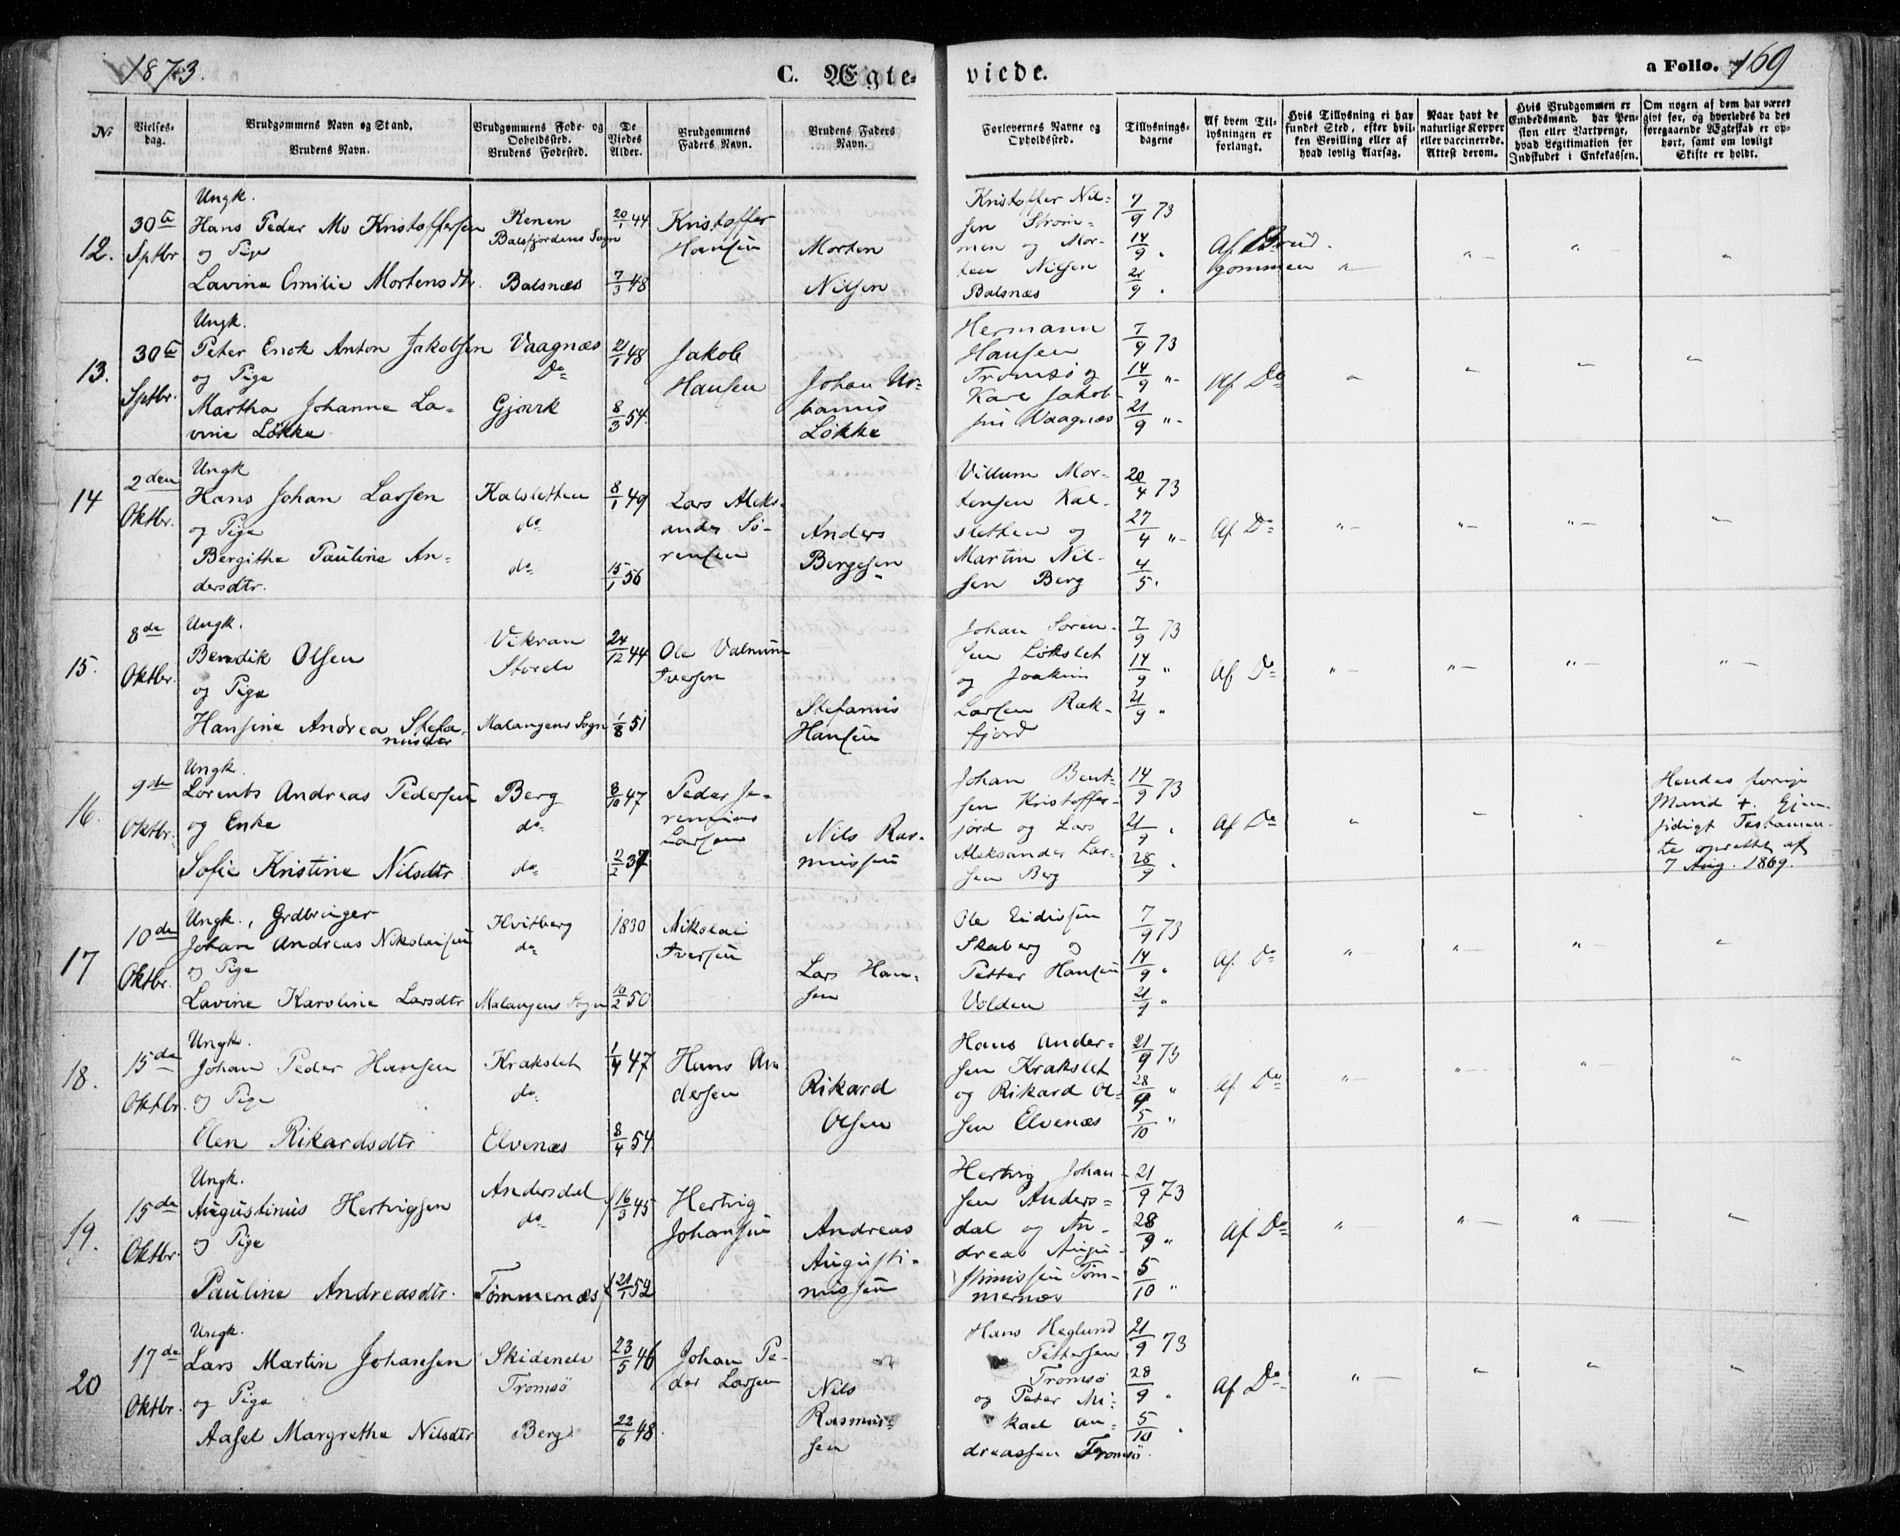 1873.
C. Ægte-
viede.
a Folio. 169
No
Vielses-
dag.
Brudgommens Navn og Stand.
Brudens Navn.
Brudgommens Føde- og
Opholdssted.
Brudens Fødested.
De
Viedes
Alder.
Brudgommens
Faders Navn.
Brudens Faders
Navn.
Forlovernes Navne og
Opholdssted.
Tillysnings-
dagene
Af hvem Til-
lysningen er
forlangt.
Hvis Tillysning ei har
fundet Sted, efter hvil-
ken Bevilling eller af
hvad lovlig Aarsag.
Naar havt de
naturlige Kopper
eller vaccinerede.
Attest derom.
Hvis Brudgommen er
Embedsmand, har Pen-
sion eller Vartpenge,
hvad Legitimation for
Indskudet i Enkekassen.
Om nogen af dem har været
gift før, og hvorledes da det
foregaaende Ægteskab er op-
hørt, samt om lovligt
Skifte er holdt.
12.
30te
Sptbr
Ungk.
Hans Peder Mo Kristoffersen
og Pige
Lavina Emilie Mortensdtr.
Renen
Balsfjordens Sogn
Balsnæs
20/1 44
7/3 48
Kristoffer
Hansen
Morten
Nilsen
Kristoffer Nil-
sen Strøm-
men og Mor-
ten Nilsen
Balsnæs
7/9 73
14/9 "
21/9 "
Af Brud-
gommen
" —
" —
" —
"
13.
30te
Sptbr.
Ungk.
Peter Enok Anton Jakobsen
og Pige
Martha Johanne La-
vine Løkke
Vaagnæs
Do
Gjøvik
21/1 48
8/3 54.
Jakob
Hansen
Johan Ur-
banus
Løkke
Hermann
Hansen
Tromsø og
Karl Jakob-
sen Vaagnæs
7/9 73
14/9 "-
21/9 "-
Af Do
" —
" —
" —
" —
14
2den
Oktbr.
Ungk
Hans Johan Larsen
og Pige
Bergitha Pauline An-
dersdtr.
Kalsletten
do
do
8/1 49
15/1 56
Lars Aleks-
ander Sø-
rensen
Anders
Bergesen
Villum Mor-
tensen Kal-
sletten og
Martin Nil-
sen Berg
20/4 73
27/4 "-
4/5 "
Af Do
" —
" —
" —
" —
15.
8de
Oktbr.
Ungk.
Bendik Olsen
og Pige
Hansine Andrea Stefa-
nusdtr
Vikran
Malangens Sogn
24/12 44
1/8 51
Ole
Iversen
Stefanus
Hansen
Johan Søren-
sen Løkslet
og Joakim
Larsen Rak-
fjord
7/9 73
14/9 "
21/9 "
Af Do
" —
" —
" —
" —
16.
9de
Oktbr.
Ungk.
Lorents Andreas Pedersen
og Enke
Sofie Kristine Nilsdtr
Berg
do
do
8/10 47
2/2 37
Peder Je-
remias
Larsen
Nils Ras-
mussen
Johan Bent-
sen Kristoffer-
jord og Lars
Aleksander Lar-
sen Berg
14/9 73
21/9 "
28/9 "
Af Do
"
"
"
Hendes forige
Mand +. Gjen-
sidigt Testamen-
te oprettet af
7 Aug. 1869.
17
10de
Oktbr.
Ungk., Grdbruger
Johan Andreas Nikolaisen
og Pige
Lavine Karoline Larsdtr
Hvitberg
do
Malangens Sogn
1830
10/2 50
Nikolai
Iversen
Lars Han-
sen
Ole Eidissen
Skaberg og
Petter Hansen
Volden
7/9 73
14/9 "
21/9 "
Af Do
" —
" —
" —
" —
18.
15de
Oktbr.
Ungk.
Johan Peder Hansen
og Pige
Elen Rikardsdtr
Krakslet
do
Elvenæs
1/4 47
8/4 54.
Hans An-
dersen
Rikard
Olsen
Hans Ander-
sen Krakslet
og Rikard Ol-
sen Elvenæs
21/9 73
28/9 "
5/10 "
Af Do
" —
" —
" —
"
19.
15de
Oktbr.
Ungk.
Augustinus Hertvigsen
og Pige
Pauline Andreasdtr.
Andersdal
do
Tømmernæs
16/3 45
21/1 52
Hertvig
Johansen
Andreas
Augusti-
nussen
Hertvig Johan-
sen Anders-
dal og An-
dreas Augu-
stinussen Tøm-
mernæs
21/9 73
28/9 "
5/10 "
Af Do
" —
" —
" —
" —
20
17de
Oktbr.
Ungk.
Lars Martin Johansen
og Pige
Aasel Margrethe Nilsdtr
Skidenelv
Tromsø
Berg
23/5 46
22/6 48.
Johan Pe-
der Larsen
Nils
Rasmus-
sen
Hans Heglund
Pettersen
Tromsø
og Peter Mi-
kael An-
dreassen Tromsø
21/9 73
28/9 "
5/10 "
Af Do
" —
" —
" —
" —